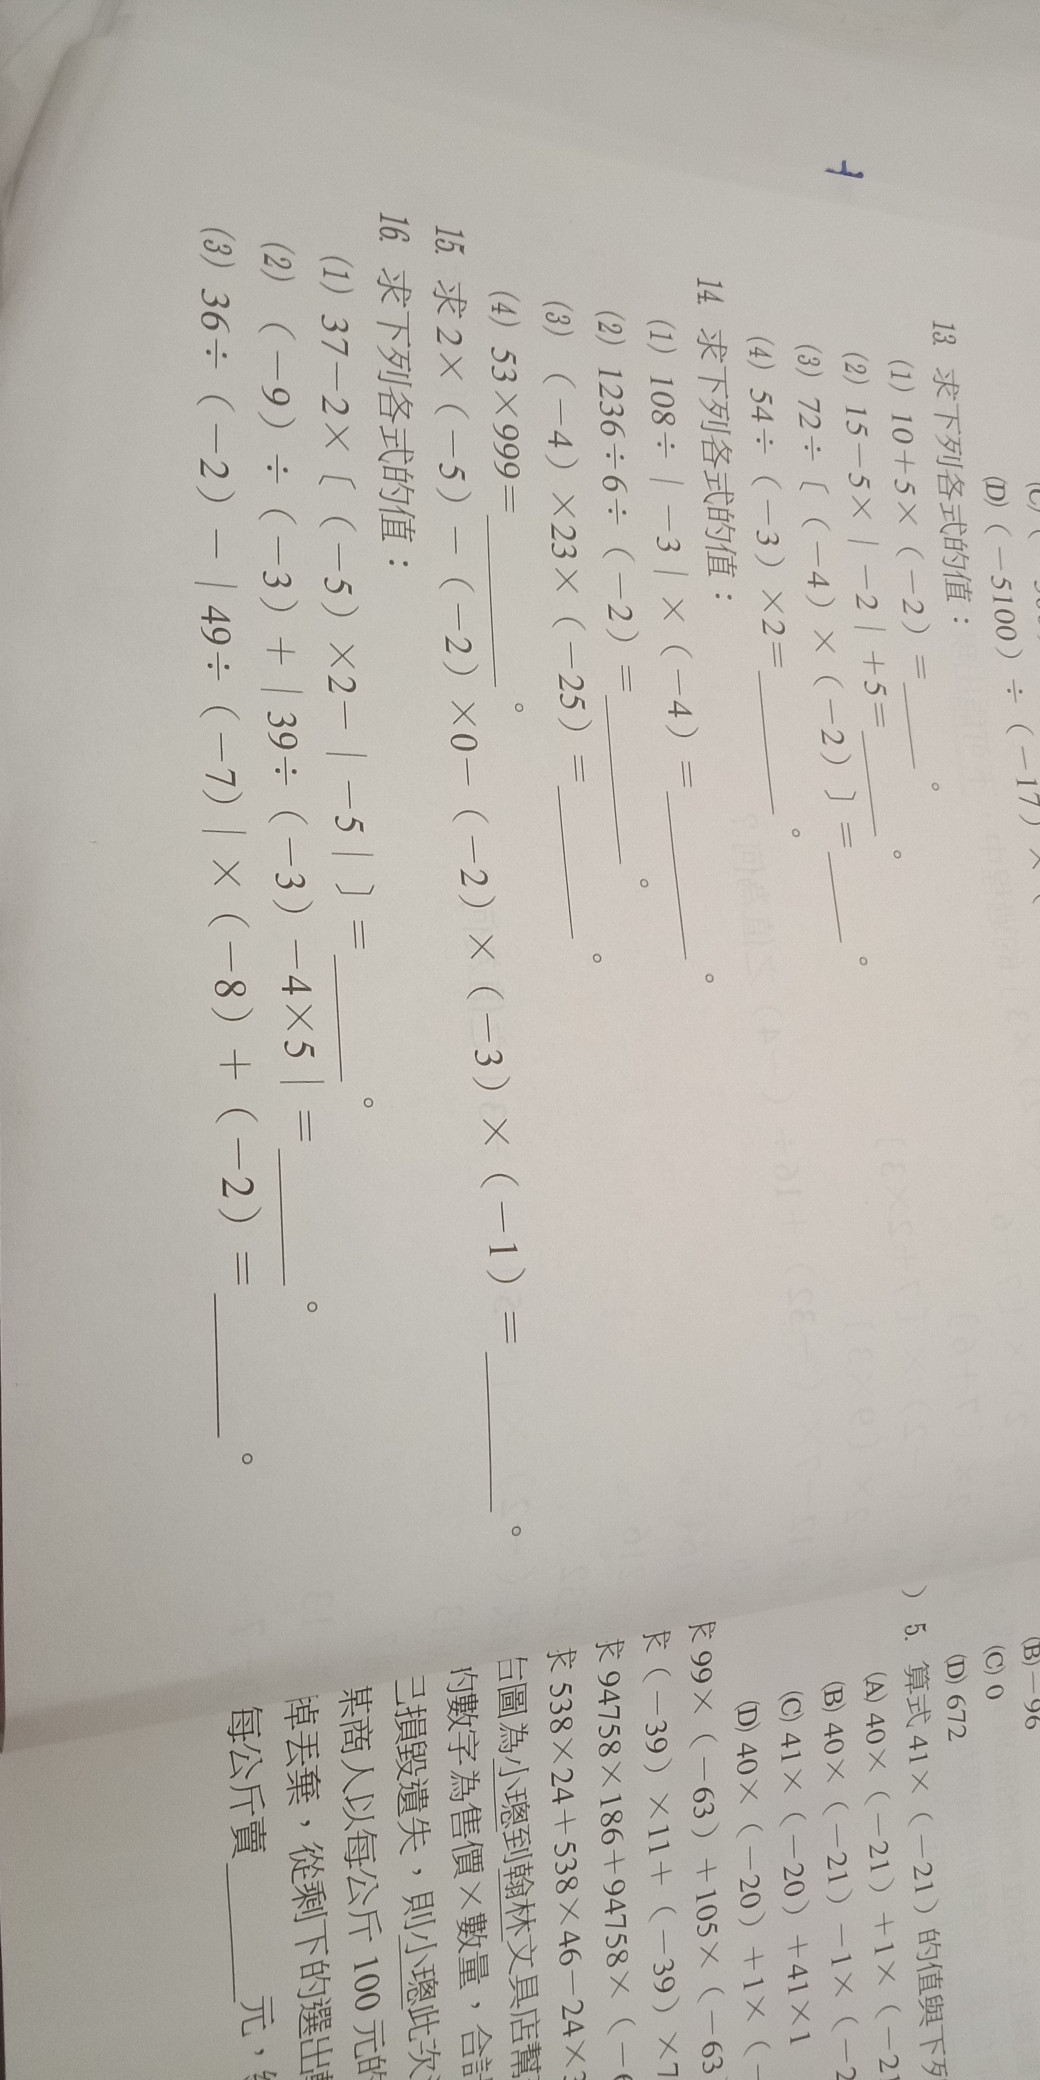 (D)（－5100）÷（－17）×（
13. 求下列各式的值：
(1) 10＋5×（－2）＝＿＿。
(2) 15－5×｜－2｜＋5＝＿＿。
(3) 72÷〔（－4）×（－2）〕＝＿＿。
(4) 54÷（－3）×2＝＿＿。
14. 求下列各式的值：
(1) 108÷｜－3｜×（－4）＝＿＿。
(2) 1236÷6÷（－2）＝＿＿。
(3) （－4）×23×（－25）＝＿＿。
(4) 53×999＝＿＿。
15. 求 2×（－5）－（－2）×0－（－2）×（－3）×（－1）＝＿＿。
16. 求下列各式的值：
(1) 37－2×〔（－5）×2－｜－5｜〕＝＿＿。
(2) （－9）÷（－3）＋｜39÷（－3）－4×5｜＝＿＿。
(3) 36÷（－2）－｜49÷（－7）｜×（－8）＋（－2）＝＿＿。
(B)－96
(C) 0
(D) 672
）5. 算式 41×（－21）的值與下列
(A) 40×（－21）＋1×（－21
(B) 40×（－21）－1×（－2
(C) 41×（－20）＋41×1
(D) 40×（－20）＋1×（－
求 99×（－63）＋105×（－63
求（－39）×11＋（－39）×7
求 94758×186＋94758×（－
求 538×24＋538×46－24×
右圖為小璁到翰林文具店幫
的數字為售價×數量，合計
已損毀遺失，則小璁此次
某商人以每公斤 100 元的
掉丟棄，從剩下的選出
每公斤賣＿＿元，